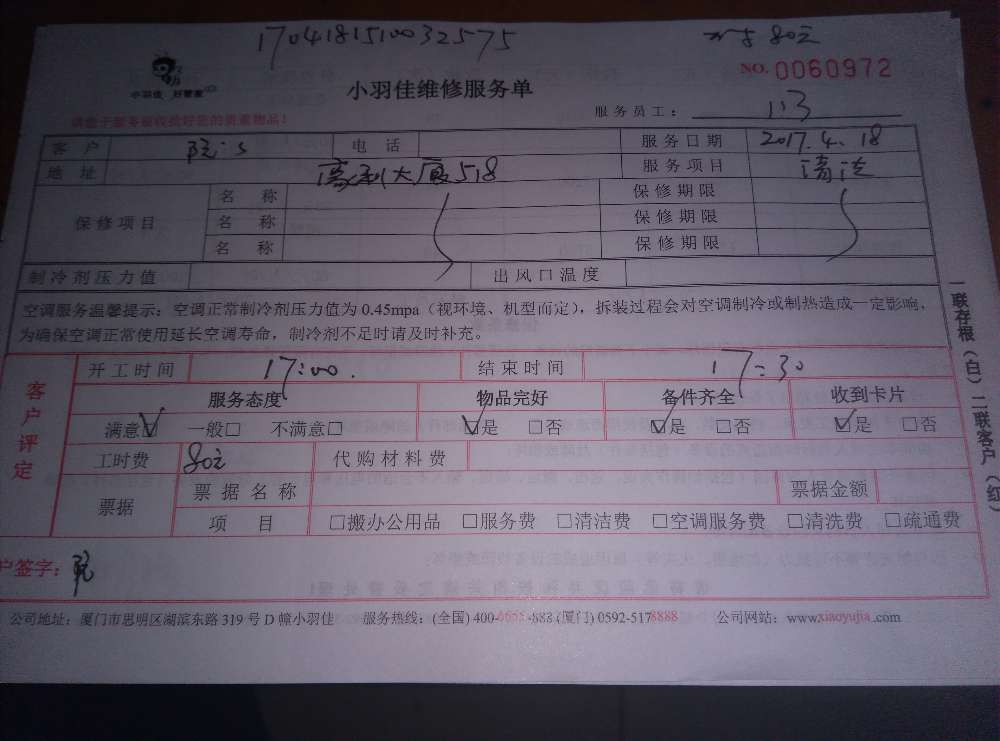 1704181510032575
80元
NO. 0060972
小羽佳 好管家
小羽佳维修服务单
服务员工:
请您于服务前收捡好您的贵重物品!
客户 电话 服务日期 2017.4.18
地址 大厦518 服务项目 清洗
保修项目 名称 保修期限
名称 保修期限
名称 保修期限
制冷剂压力值 出风口温度
空调服务温馨提示:空调正常制冷剂压力值为0.45mpa(视环境、机型而定),拆装过程会对空调制冷或制热造成一定影响,
为确保空调正常使用延长空调寿命,制冷剂不足时请及时补充。
客户评定
开工时间 17:00. 结束时间 17:30
服务态度 物品完好 备件齐全 收到卡片
满意☑ 一般□ 不满意□ ☑是 □否 ☑是 □否 ☑是 □否
工时费 80元 代购材料费
票据 票据名称 票据金额
项目 □搬办公用品 □服务费 □清洁费 □空调服务费 □清洗费 □疏通费
户签字:
一联存根(白)二联客户(红)
公司地址:厦门市思明区湖滨东路319号D幢小羽佳 服务热线:(全国)400-6655-888(厦门)0592-5178888 公司网站:www.xiaoyujia.com